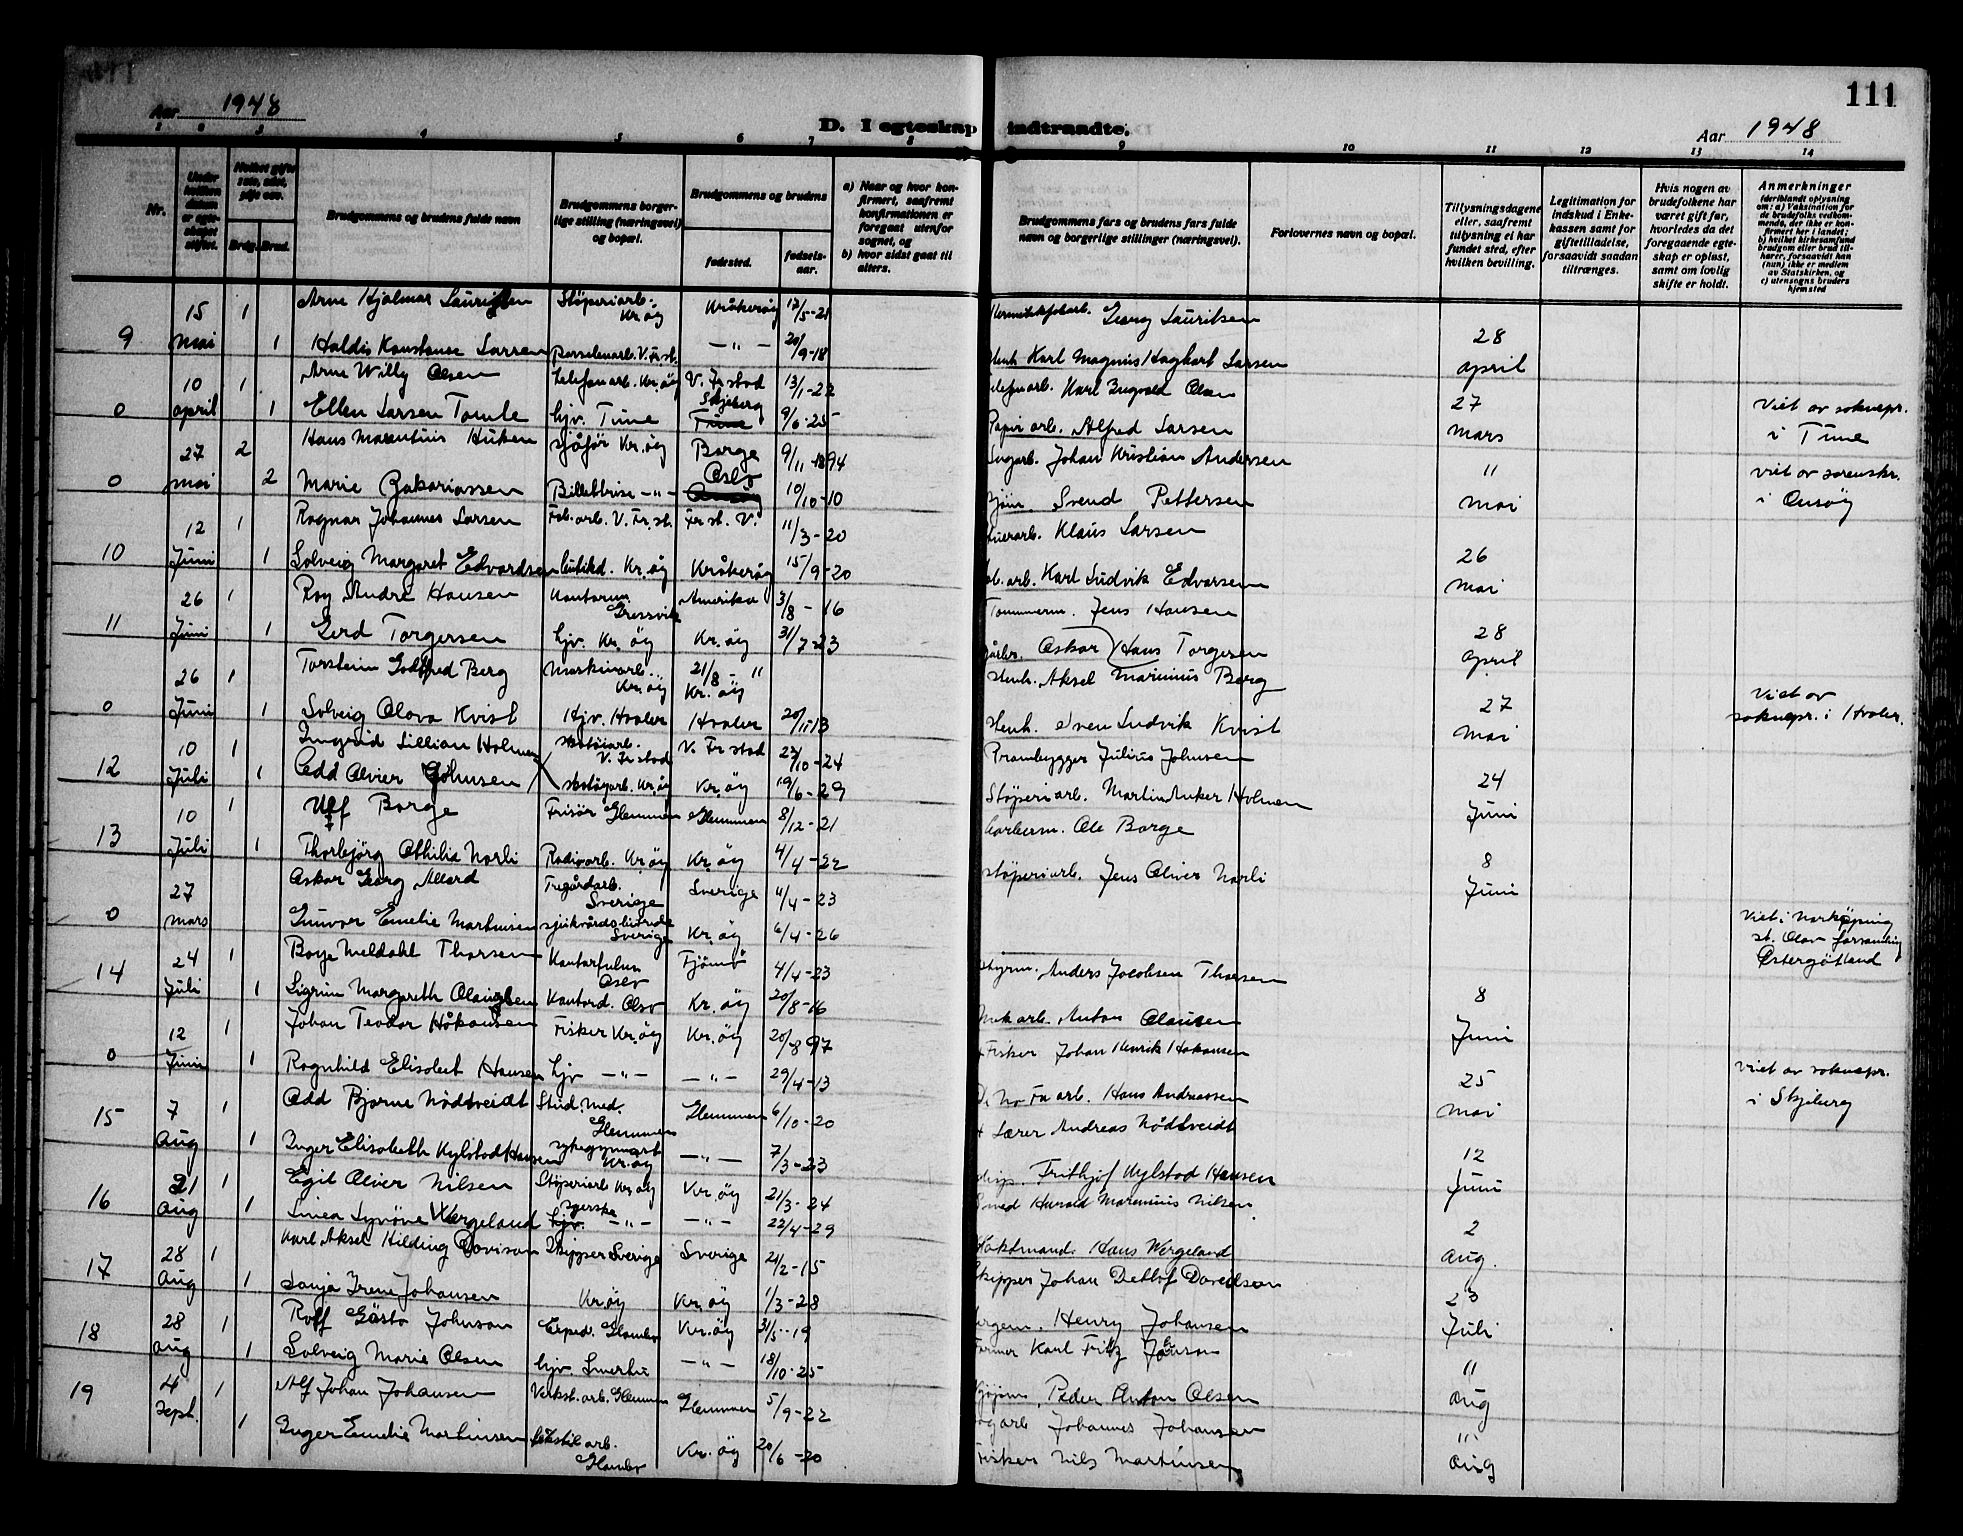 Aar 1948
D. I egteskap indtraadte.
111
Aar 1948
1 2 3 4 5 6 7 8 9 10 11 12 13 14
Nr.
Under hvilken datum er egteskapet stiftet.
Hvilket gifte 1ste, 2det, 3dje osv.
Brdg. Brud.
Brudgommens og brudens fulde navn
Brudgommens borgerlige stilling (næringsvei) og bopæl.
Brudgommens og brudens
fødested.
fødselsaar.
a) Naar og hvor konfirmert, saafremt konfirmationen er foregaat utenfor sognet, og
b) hvor sidst gaat til alters.
Brudgommens fars og brudens fars fulde navn og borgerlige stillinger (næringsvei).
Forlovernes navn og bopæl.
Tillysningsdagene eller, saafremt tillysning ei har fundet sted, efter hvilken bevilling.
Legitimation for indskud i Enkekassen samt for giftetilladelse, forsaavidt saadan tiltrænges.
Hvis nogen av brudefolkene har været gift før, hvorledes da det foregaaende egteskap er opløst, samt om lovlig skifte er holdt.
Anmerkninger (deriblandt oplysning om: a) Vaksination for de brudefolks vedkommende, der ikke er konfirmert her i landet; b) hvilket kirkesamfund brudgom eller brud tilhører, forsaavidt han (hun) ikke er medlem av Statskirken, og c) utensogns bruders hjemsted
9 15 mai 1 Arne Hjalmar Lauritsen Støperiarb. Kr.øy Kråkerøy 17/5-21 Georg Lauritsen 28 april
1 Haldis Konstanse Larsen V. Fr.st. —"— 20/9-18 Karl Magnus Haghart Larsen
0 10 april 1 Arne Willy Olsen telefonarb. Kr.øy V. Fr.stad 13/1-22 Karl Ingvald Olsen 27 mars Viet av soknepr. i Tune
1 Ellen Larsen Tomte hjv. Tune Skjeberg 9/6-25 Papirarb. Alfred Larsen
0 27 mai 2 Hans Marentius Huken sjåfør Kr.øy Borge 9/11-1894 Johan Kristian Andersen 11 mai viet av sorenskr. i Onsøy
2 Marie Zakariassen —"— Oslo 10/10-10 Svend Pettersen
10 12 Juni 1 Ragnar Johannes Larsen Fab.arb. V. Fr.st. Fr.st. V. 11/3-20 Klaus Larsen 26 mai
1 Solveig Margaret Edvardsen butikd. Kr.øy Kråkerøy 15/9-20 Karl Ludvik Edvarsen
11 26 Juni 1 Roy Andre Hansen Kontorm. Gressvik Amerika 3/8-16 Tømmerm. Jens Hansen 28 april
1 Gerd Torgersen hjv. Kr.øy Kr.øy 31/7-23 Oskar Hans Torgersen
0 26 Juni 1 Torstein Godtfred Berg Maskinarb. Kr.øy 21/8-11 Kr.øy Stenh. Aksel Marinius Berg 27 mai Viet av soknepr. i Hvaler.
1 Solveig Olava Kvist Hjv. Hvaler Hvaler 20/11-13 Stenh. Even Ludvik Kvist
12 10 Juli 1 Ingrid Lillian Holmen skotøiarb. V. Fr.stad V. Fr.stad 23/10-24 Prambygger Julius Johnsen 24 Juni
1 Odd Oliver Johnsen skotøyarb. Kr.øy Kr.øy 19/6-29 Støperiarb. Martin Anker Holmen
13 10 Juli 1 Ulf Borge Frisør Glemmen Glemmen 8/12-21 Ole Borge 8 Juni
1 Thorbjørg Othilie Norli Radioarb. Kr.øy Kr.øy 4/4-22 støperiarb. Jens Oliver Norli
0 27 mars Oskar Georg Allard Sverige Sverige 4/4-23 Viet i Norkøping st. Olav forsamling Østergøtland
Gunvor Emelie Martinsen Sverige Kr.øy 6/4-26
14 24 Juli 1 Boye Meldahl Thorsen Kontorfulm. Oslo Tjømø 4/4-23 styrm. Anders Jacobsen Thorsen 8 Juni
1 Sigrun Margareth Clausen Kontord. Oslo Kr.øy 20/8-16 Anton Clausen
0 12 Juni 1 Johan Teodor Håkonsen Fisker Kr.øy Kr.øy 20/8-97 Fisker Johan Henrik Håkonsen 25 mai Viet av soknepr. i Skjeberg
1 Ragnhild Elisabet Hansen hjv —"— —"— 29/4-13 Hans Andreassen
15 7 Aug 1 Odd Bjarne Nødtveidt Stud.med. Glemmen Glemmen 6/10-20 Lærer Andreas Nødtveidt 12 Juni
1 Inger Elisabeth Kylstad Hansen Kr.øy —"— 7/3-23 Disp. Frithjof Kylstad Hansen
16 21 Aug 1 Egil Oliver Nilsen Støperiarb Kr.øy Kr.øy 21/3-24 Smed Harald Marinius Nilsen 2 Aug.
1 Linea Synøve Wergeland syerske —"— —"— 22/4-29 Hans Wergeland
17 28 Aug 1 Karl Aksel Hilding Davison Skipper Sverige Sverige 21/2-15 Skipper Johan Detlof Davidson 23 Juli
1 Sonja Irene Johansen Kr.øy Kr.øy 1/3-28 Henry Johansen
18 28 Aug 1 Rolf Gösta Johnson Exped. Glombo Kr.øy 31/5-19 Former Karl Fritz Johnson 11 Aug
1 Solveig Marie Olsen hjv —"— 18/10-25 Peder Anton Olsen
19 4 Sept. 1 Alf Johan Johansen Verkst.arb. Glemmen Glemmen 5/9-22 Johannes Johansen 11 Aug
1 Inger Emelie Martinsen tekstil arb. Glombo Kr.øy 20/6-20 Fisker Nils Martinsen